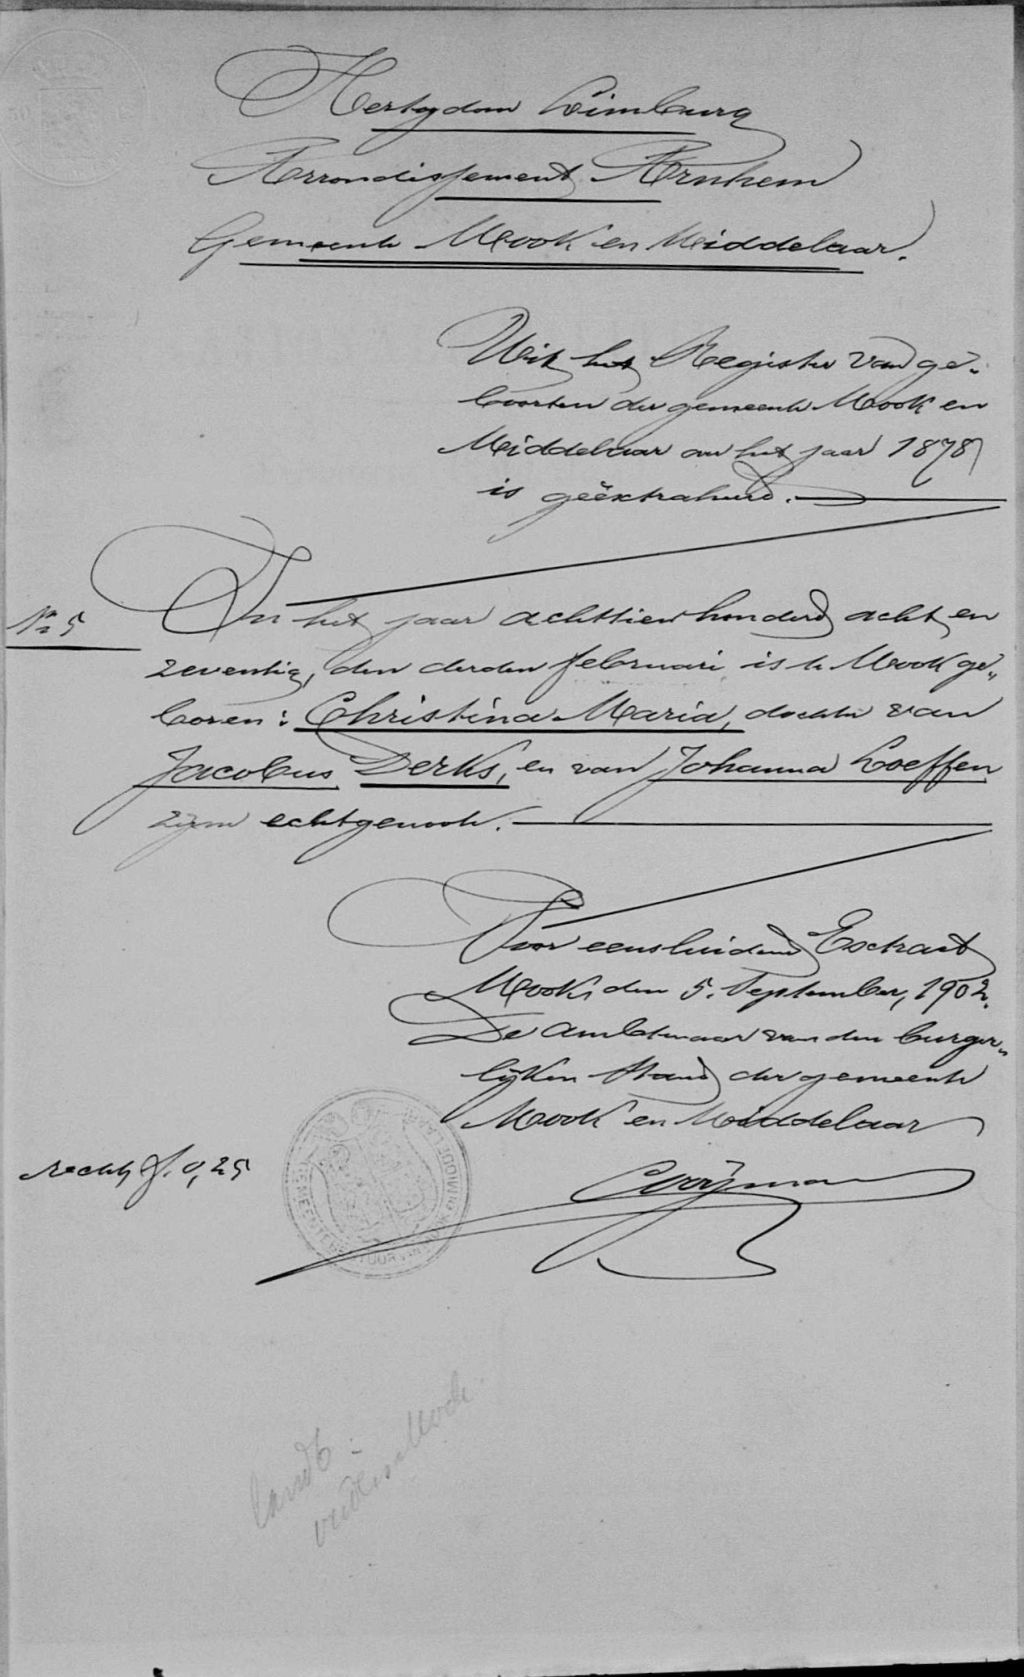 Hertogdom Limburg
Arrondissement Arnhem
Gemeente Mook en Middelaar.
Uit het Register van ge-
boorten der gemeente Mook en
Middelaar over het jaar 1878
is geëxtraheerd.
No 5
In het jaar achttien honderd acht en
zeventig, den derden februari is te Mook ge-
boren: Christina Maria, dochter van
Jacobus Derks, en van Johanna Loeffen
zijne echtgenoote.
Voor eensluidend Extract
Mook, den 5. September, 1902.
De Ambtenaar van den burger-
lijken Stand der gemeente
Mook en Middelaar
recht f. 0,25